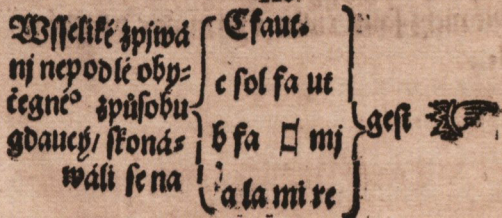 Wsseliké zpjwá
nj nepodlé oby=
čegnéº způsobu
gdaucý/ skoná=
wáli se na
C faut.
c sol fa ut
b fa □ mj
a la mi re
gest